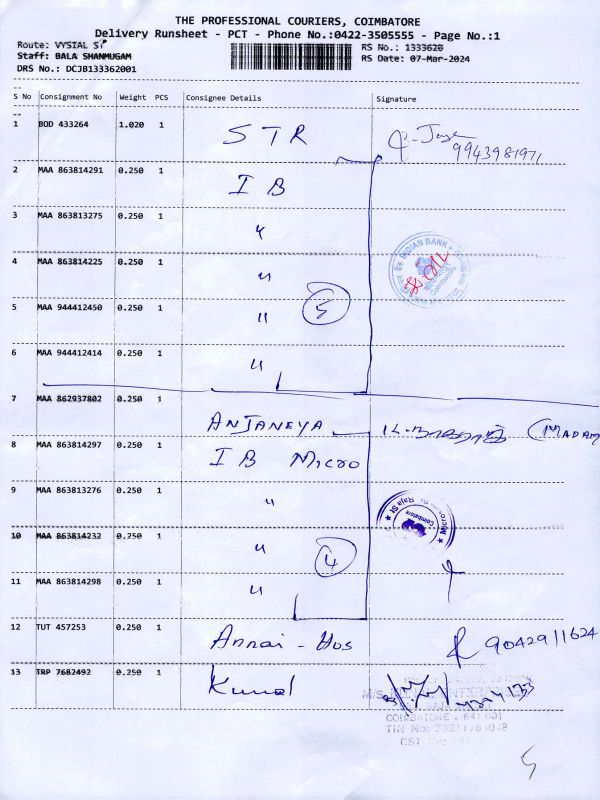 THE PROFESSIONAL COURIERS, COIMBATORE
Delivery Runsheet - PCT - Phone No.:0422-3505555 - Page No.:1
Route: VYSIAL ST RS No.: 1333620
Staff: BALA SHANMUGAM RS Date: 07-Mar-2024
DRS No.: DCJB133362001
S No Consignment No Weight PCS Consignee Details Signature
1 BOD 433264 1.020 1 STR
9943981971
2 MAA 863814291 0.250 1 IB
3 MAA 863813275 0.250 1 "
4 MAA 863814225 0.250 1 " INDIAN BANK
5 MAA 944412450 0.250 1 " 5
6 MAA 944412414 0.250 1 "
7 MAA 862937802 0.250 1 ANJANEYA (MADAM
8 MAA 863814297 0.250 1 IB Micro
9 MAA 863813276 0.250 1 "
Coimbatore
10 MAA 863814232 0.250 1 " 4
11 MAA 863814298 0.250 1 "
12 TUT 457253 0.250 1 Annai - Hos 9042911624
13 TRP 7682492 0.250 1 Kunal
COIMBATORE - 641 001
TIN No:
CST
5